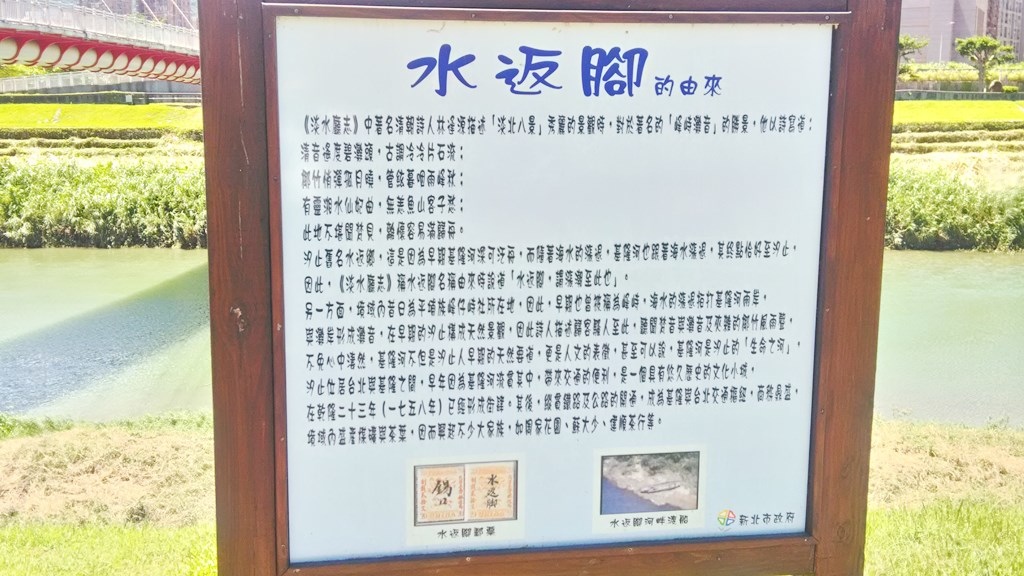 水返腳的由來
《淡水廳志》中著名清朝詩人林逢源描述「淡北八景」秀麗的景觀時，對於著名的「峰峙灘音」的勝景，他以詩寫道：
清音遙度碧灘頭，古調泠泠片石流；
鄰竹梢彈孤月曉，管絃暮咽兩峰秋；
有靈湘水仙妃曲，無恙魚山客子愁；
此地不堪聞梵貝，離懷容易滿歸舟。
汐止舊名水返腳，這是因為早期基隆河深可泛舟，而隨著海水的漲退，基隆河也跟著海水漲退，其終點恰好至汐止，
因此，《淡水廳志》稱水返腳名稱由來時說道「水返腳，謂潮漲至此也」。
另一方面，境域內昔日為平埔族峰仔峙社所在地，因此，早期也曾被稱為峰峙，潮水的漲退拍打基隆河兩岸，
與灘岸形成灘音，在早期的汐止構成天然景觀，因此詩人描述騷客騷人至此，聽聞梵音與灘音及夾雜的鄰竹風雨聲，
不免心中淒然，基隆河不但是汐止人早期的天然海道，更是人文的表徵，甚至可以說，基隆河是汐止的「生命之河」，
汐止位居台北與基隆之間，早年因為基隆河流貫其中，帶來交通的便利，是一個具有悠久歷史的文化小城，
在乾隆二十三年（一七五八年）已經形成街肆。其後，縱貫鐵路及公路的開通，成為基隆與台北交通樞紐，商務長遠，
境域內盛產煤礦與茶葉，因而興起不少大家族，如周家花園、蘇大少、建隆茶行等。
鍋口
水返腳
水返腳郵章
水返腳河畔渡船
新北市政府